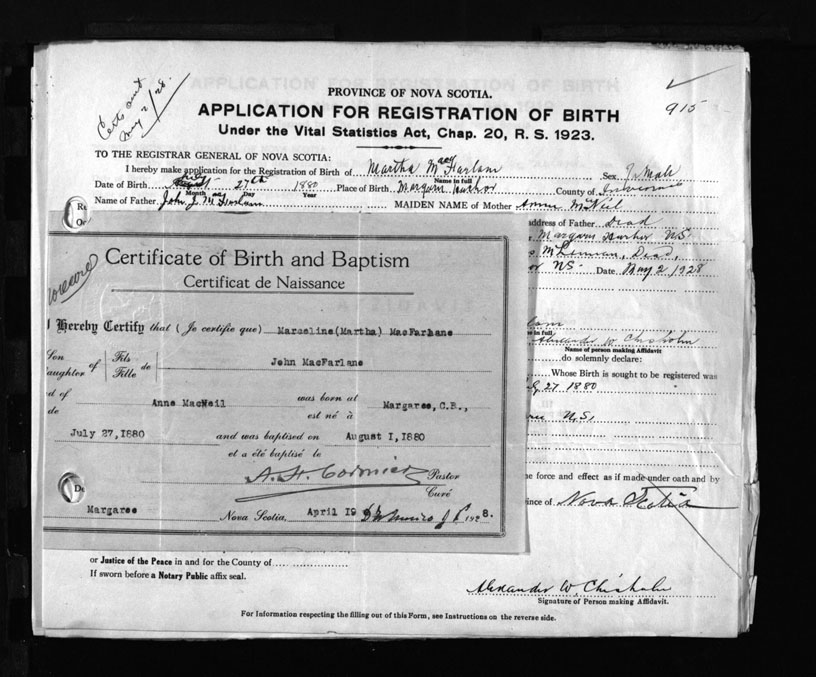 Certs sent
May 2/28.
915
PROVINCE OF NOVA SCOTIA.
APPLICATION FOR REGISTRATION OF BIRTH
Under the Vital Statistics Act, Chap. 20, R. S. 1923.
TO THE REGISTRAR GENERAL OF NOVA SCOTIA:
I hereby make application for the Registration of Birth of Martha MacFarlane Sex Female
Name in full
Date of Birth July 27th 1880 Place of Birth Margaree Harbor County of Inverness
Month Day Year
Name of Father John J. MacFarlane MAIDEN NAME of Mother Annie McNeil
address of Father Dead
Margaree Harbor N.S.
McLennan, Dead,
N.S. Date May 2 1928
Certificate of Birth and Baptism
Certificat de Naissance
I Hereby Certify that (Je certifie que) Marceline(Martha) MacFarlane
Son Fils
Daughter of Fille de John MacFarlane
d of Anne MacNeil was born at Margaree, C.B.,
de est né à
July 27, 1880 and was baptised on August 1, 1880
et a été baptisé le
Pastor
Curé
Margaree Nova Scotia, April 19 1928.
in full
Alexander W Chisholm
Name of person making Affidavit
do solemnly declare:
Whose Birth is sought to be registered was
July 27 1880
N.S.
e force and effect as if made under oath and by
ince of Nova Scotia
or Justice of the Peace in and for the County of
If sworn before a Notary Public affix seal.
Alexander W. Chisholm
Signature of Person making Affidavit.
For Information respecting the filling out of this Form, see Instructions on the reverse side.